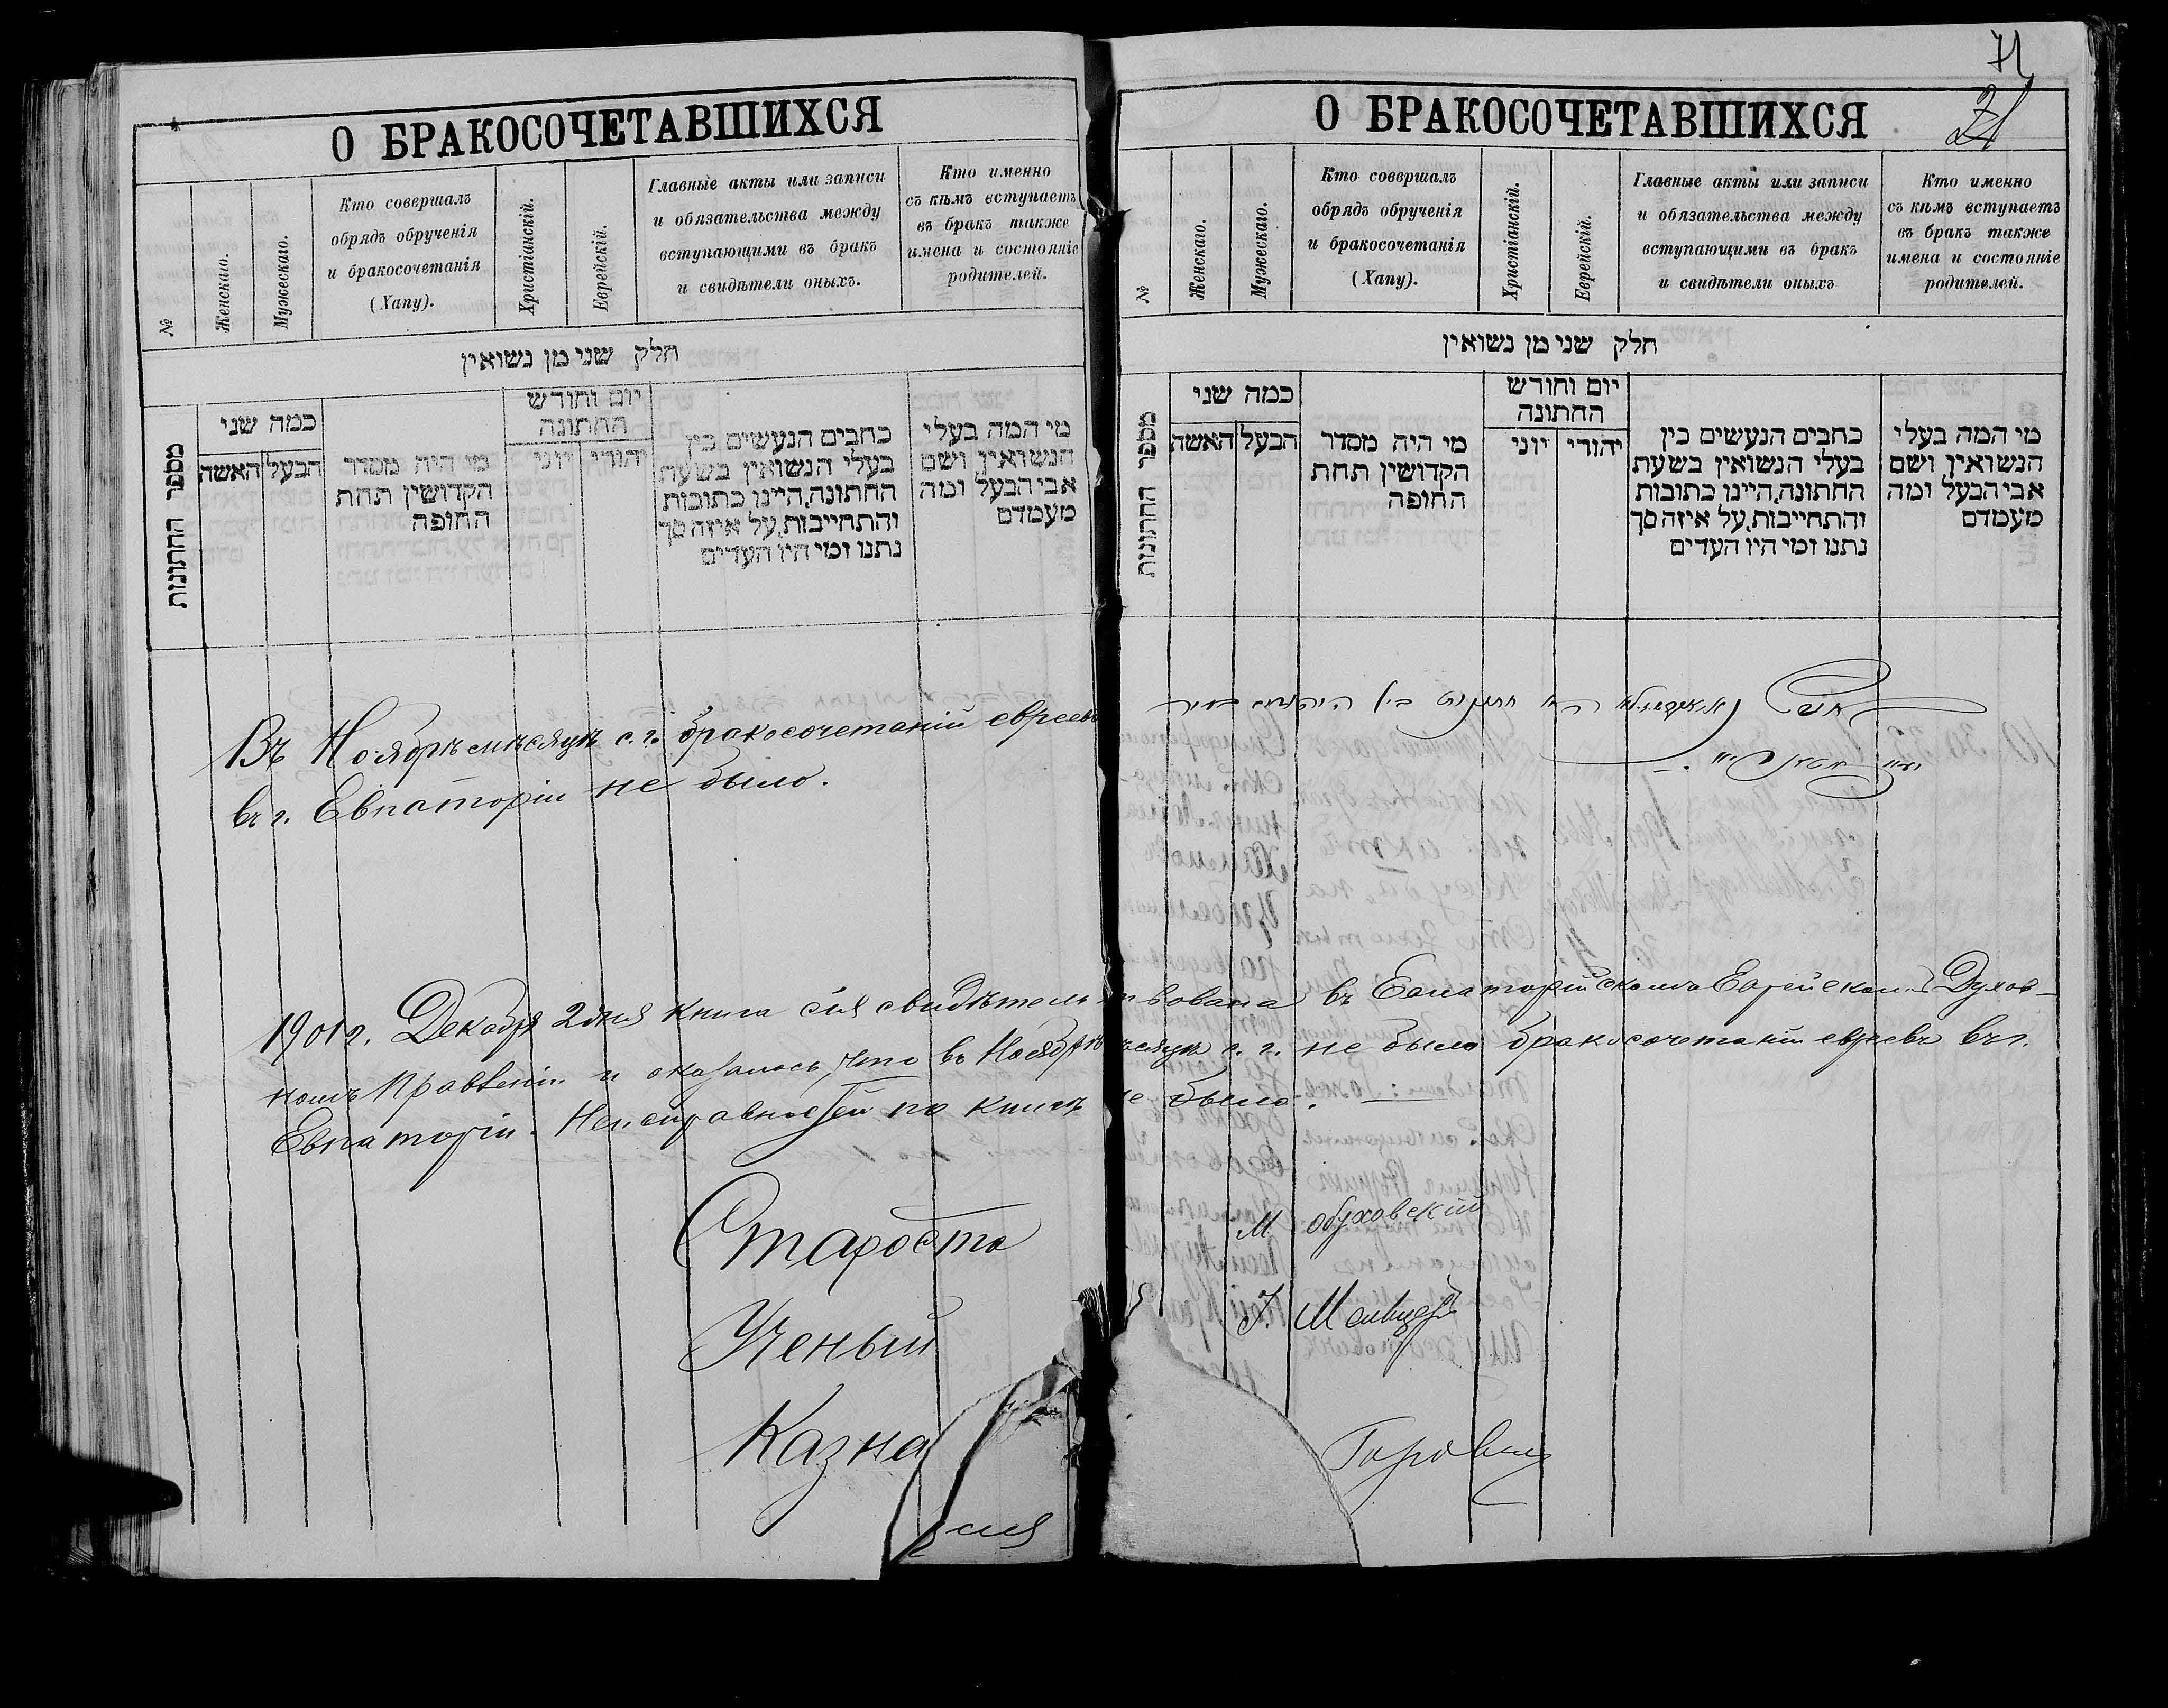 О БРАКОСОЧЕТАВШИХСЯ
№
Женскаго.
Мужескаго.
Кто совершалъ
обрядъ обрученія
и бракосочетанія
(Хапу).
Христіанскій.
Еврейскій.
Главные акты или записи
и обязательства между
вступающими въ бракъ
и свидѣтели оныхъ.
Кто именно
съ кѣмъ вступаетъ
въ бракъ также
имена и состояніе
родителей.
חלק שני מן נשואין
מספר החתונות
כמה שני
האשה
הבעל
מי היה מסדר
הקדושין תחת
החופה
יום וחודש
החתונה
יוני
יהודי
כתבים הנעשים בין
בעלי הנשואין בשעת
החתונה, היינו כתובות
והתחייבות, על איזה סך
נתנו ומי היו העדים
מי המה בעלי
הנשואין ושם
אבי הבעל ומה
מעמדם
Въ Ноябрѣ мѣсяцѣ с. г. бракосочетаній евреевъ
въ г. Евпаторіи не было.
71
21
О БРАКОСОЧЕТАВШИХСЯ
№
Женскаго.
Мужескаго.
Кто совершалъ
обрядъ обрученія
и бракосочетанія
(Хапу).
Христіанскій.
Еврейскій.
Главные акты или записи
и обязательства между
вступающими въ бракъ
и свидѣтели оныхъ
Кто именно
съ кѣмъ вступаетъ
въ бракъ также
имена и состояніе
родителей.
חלק שני מן נשואין
מספר החתונות
כמה שני
האשה
הבעל
מי היה מסדר
הקדושין תחת
החופה
יום וחודש
החתונה
יוני
יהודי
כתבים הנעשים בין
בעלי הנשואין בשעת
החתונה, היינו כתובות
והתחייבות, על איזה סך
נתנו ומי היו העדים
מי המה בעלי
הנשואין ושם
אבי הבעל ומה
מעמדם
1901 г. Декабря 2 дня книга сія свидѣтельствована въ Евпаторійскомъ Еврейскомъ Духов-
номъ Правленіи и оказалось, что въ Ноябрѣ мѣсяцѣ с. г. не было бракосочетаній евреевъ въ г.
Евпаторіи. Неисправностей по книгѣ не было.
Староста М. Обуховскій
Ученый
Казна